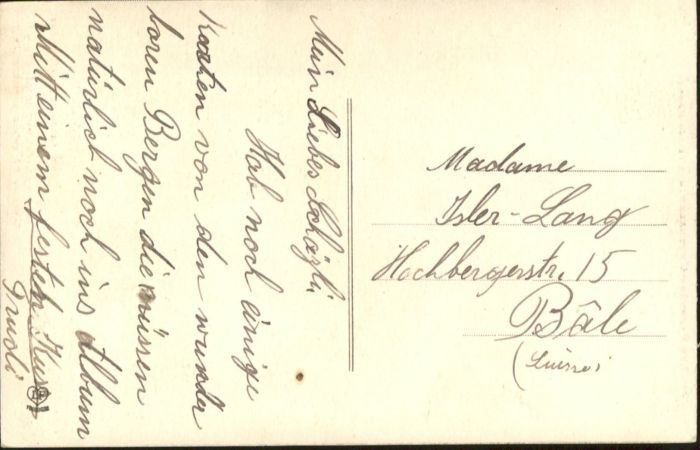 Mein Liebes Schäzli,
Hab noch einige
Karten von den wunder
baren Bergen die müssen
natürlich noch ins Album
Mitt einem festen Kuss
Trudi
Madame
Isler-Lang
Hochbergerstr. 15
Bâle
(Suisse)